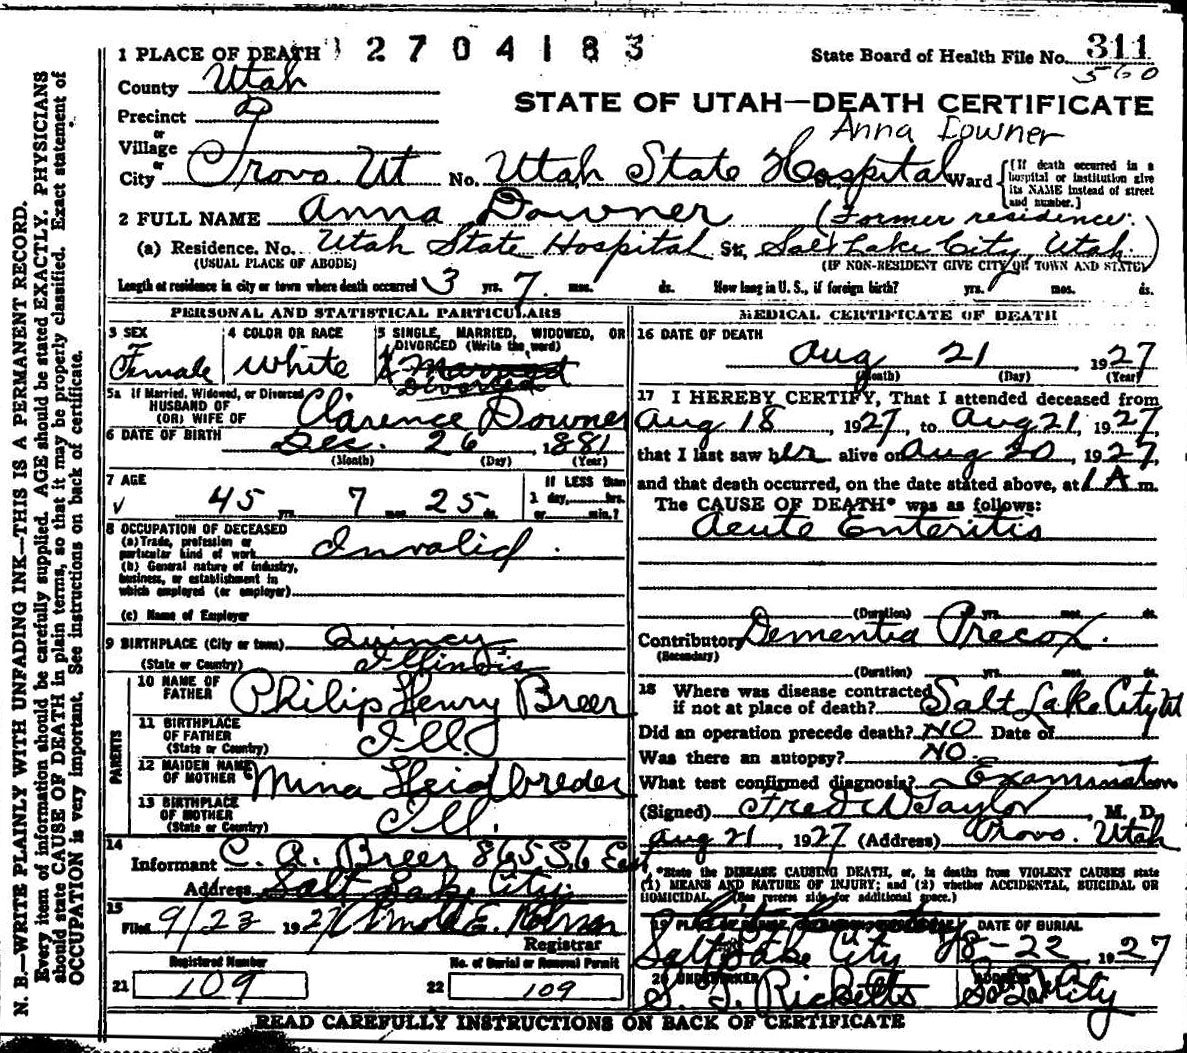 1 PLACE OF DEATH 2704183 State Board of Health File No. 311
560
County Utah
STATE OF UTAH—DEATH CERTIFICATE
Precinct P
Anna Downer
or
Village
or
City Provo. Ut No. Utah State Hospital St., Ward
[If death occurred in a hospital or institution give its NAME instead of street and number.]
2 FULL NAME Anna Downer (Former residence:
(a) Residence. No. Utah State Hospital St., Salt Lake City, Utah.)
(USUAL PLACE OF ABODE) (IF NON-RESIDENT GIVE CITY OR TOWN AND STATE)
Length of residence in city or town where death occurred 3 yrs. 7 mos. ds. How long in U. S., if foreign birth? yrs. mos. ds.
PERSONAL AND STATISTICAL PARTICULARS
3 SEX
Female
4 COLOR OR RACE
White
5 SINGLE, MARRIED, WIDOWED, OR DIVORCED (Write the word)
Married
Divorced
5a If Married, Widowed, or Divorced
HUSBAND OF
(OR) WIFE OF Clarence Downer
6 DATE OF BIRTH Dec. 26, 1881
(Month) (Day) (Year)
7 AGE
√ 45 yrs. 7 mos. 25 ds.
If LESS than
1 day, hrs.
or min.?
8 OCCUPATION OF DECEASED
(a) Trade, profession or
particular kind of work Invalid.
(b) General nature of industry,
business, or establishment in
which employed (or employer)
(c) Name of Employer
9 BIRTHPLACE (City or town) Quincy
(State or Country) Illinois
PARENTS
10 NAME OF FATHER Philip Henry Breer
11 BIRTHPLACE OF FATHER (State or Country) Ill.
12 MAIDEN NAME OF MOTHER Mina Heidbreder
13 BIRTHPLACE OF MOTHER (State or Country) Ill.
14
Informant C. A. Breer 865 S, 6 East
Address Salt Lake City.
15
Filed 9/23 1927 Arnold E. Robison
Registrar
Registered Number No. of Burial or Removal Permit
21 109 22 109
MEDICAL CERTIFICATE OF DEATH
16 DATE OF DEATH
Aug 21 1927
(Month) (Day) (Year)
17 I HEREBY CERTIFY, That I attended deceased from
Aug 18, 1927, to Aug 21, 1927,
that I last saw her alive on Aug 20, 1927,
and that death occurred, on the date stated above, at 1 A m.
The CAUSE OF DEATH* was as follows:
Acute Enteritis
(Duration) yrs. mos. ds.
Contributory Dementia Precox.
(Secondary)
(Duration) yrs. mos. ds.
18 Where was disease contracted
if not at place of death? Salt Lake City Ut
Did an operation precede death? NO Date of
Was there an autopsy? NO.
What test confirmed diagnosis? Examination
(Signed) Fred W Taylor, M. D.
Aug 21, 1927 (Address) Provo. Utah
*State the DISEASE CAUSING DEATH, or, in deaths from VIOLENT CAUSES state
(1) MEANS AND NATURE OF INJURY; and (2) whether ACCIDENTAL, SUICIDAL OR
HOMICIDAL. (See reverse side for additional space.)
19 PLACE OF DATE OF BURIAL
Salt Lake City 8-22, 1927
20 UNDERTAKER ADDRESS
S. J. Ricketts Salt Lake City
READ CAREFULLY INSTRUCTIONS ON BACK OF CERTIFICATE
N. B.—WRITE PLAINLY WITH UNFADING INK—THIS IS A PERMANENT RECORD.
Every item of information should be carefully supplied. AGE should be stated EXACTLY. PHYSICIANS
should state CAUSE OF DEATH in plain terms, so that it may be properly classified. Exact statement of
OCCUPATION is very important. See instructions on back of certificate.